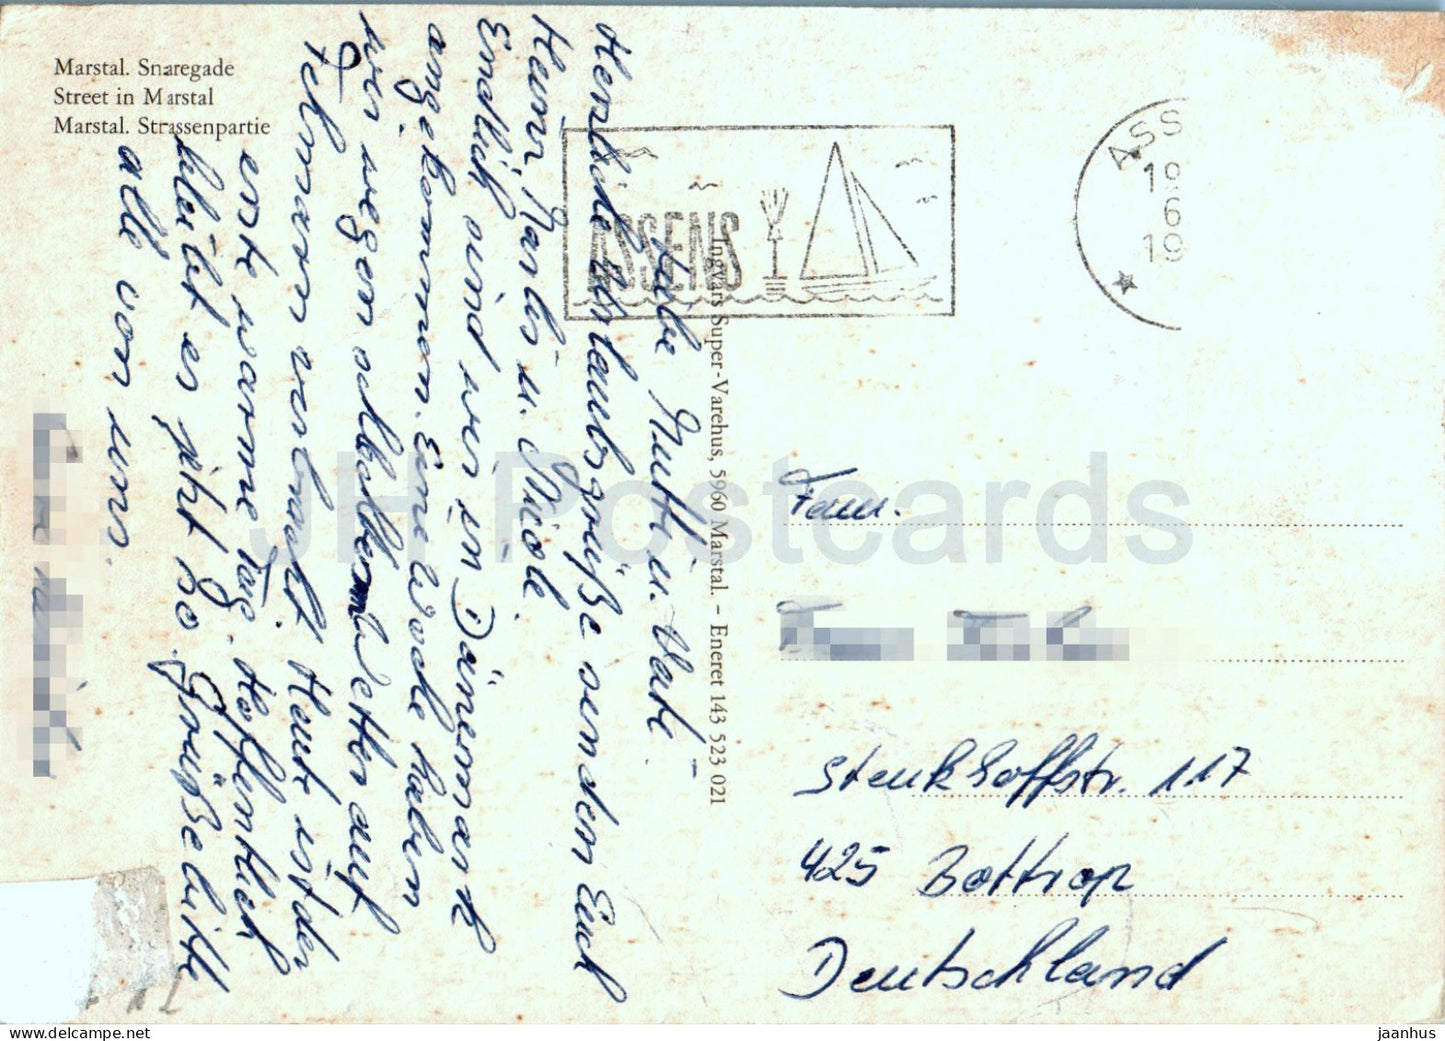 Marstal. Snaregade
Street in Marstal
Marstal. Strassenpartie
Liebe Mutti u. Vati
Herzliche Urlaubsgrüße senden Euch
Heinz, Marlis u. Nicole.
Endlich sind wir in Dänemark
angekommen. Eine Woche haben
wir wegen schlechtem Wetter auf
Fehmarn verbracht. Heute ist der
erste warme Tag. Hoffentlich
bleibt es jetzt so. Grüße bitte
alle von uns.
Ingvars Super-Varehus, 5960 Marstal. – Eneret 143 523 021
ASSENS
ASS
19
6
19
Fam.
Stenkhoffstr. 117
425 Bottrop
Deutschland
JH Postcards
jaanhus
hippostcard.com